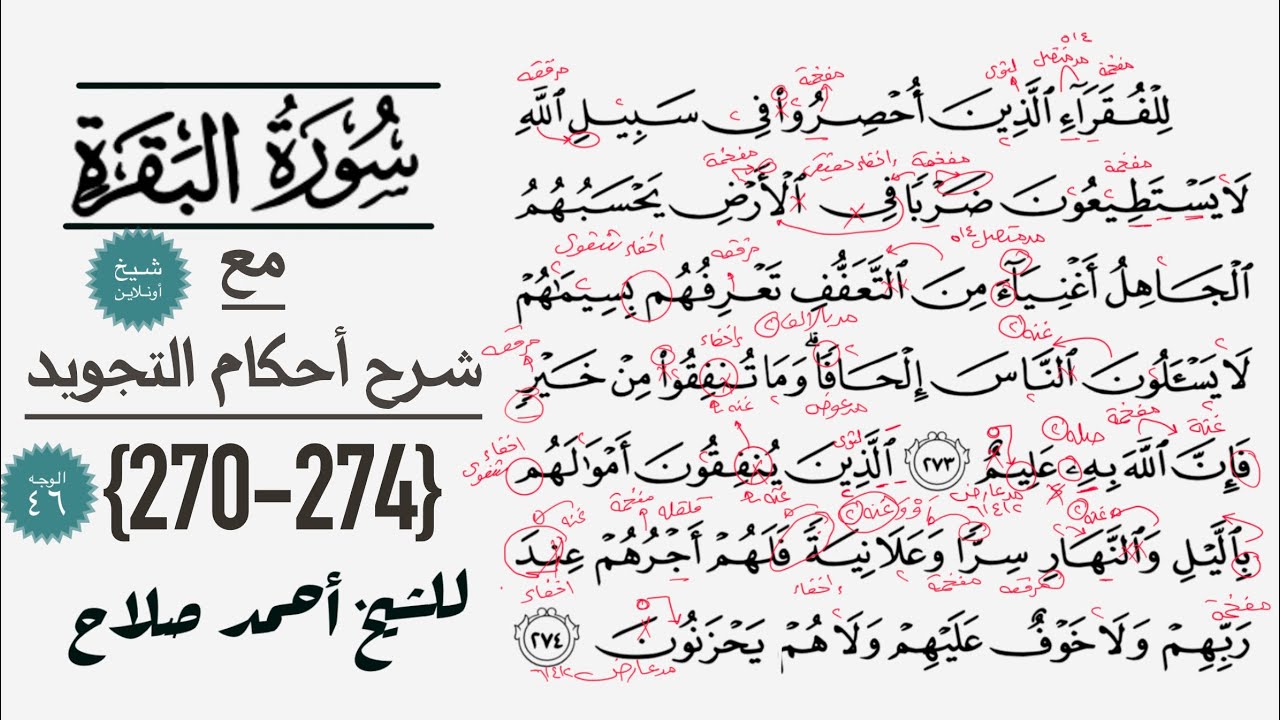 سُورَةُ البَقَرَةِ
مع
شيخ
أونلاين
شرح أحكام التجويد
{270-274}
الوجه
٤٦
للشيخ أحمد صلاح
لِلْفُقَرَآءِ ٱلَّذِينَ أُحْصِرُوا۟ فِى سَبِيلِ ٱللَّهِ
لَا يَسْتَطِيعُونَ ضَرْبًا فِى ٱلْأَرْضِ يَحْسَبُهُمُ
ٱلْجَاهِلُ أَغْنِيَآءَ مِنَ ٱلتَّعَفُّفِ تَعْرِفُهُم بِسِيمَٰهُمْ
لَا يَسْـَٔلُونَ ٱلنَّاسَ إِلْحَافًا ۗ وَمَا تُنفِقُوا۟ مِنْ خَيْرٍ
فَإِنَّ ٱللَّهَ بِهِۦ عَلِيمٌ ٢٧٣ ٱلَّذِينَ يُنفِقُونَ أَمْوَٰلَهُم
بِٱلَّيْلِ وَٱلنَّهَارِ سِرًّا وَعَلَانِيَةً فَلَهُمْ أَجْرُهُمْ عِندَ
رَبِّهِمْ وَلَا خَوْفٌ عَلَيْهِمْ وَلَا هُمْ يَحْزَنُونَ ٢٧٤
مرققه مفخمة لثوى مد متصل ٥/٤ مفخمة
مفخمة إخفاء حقيقى مفخمة مفخمة
إخفاء شفوى مرققه مد متصل ٥/٤
مرققه إخفاء غنه مد عوض غنه
إخفاء شفوى لثوى غنه صله مفخمة غنة
غنه قلقله مفخمة غنه مد عارض ٦/٤/٢ غنه
إخفاء إخفاء مفخمة مرققه مفخمة
مد عارض ٦/٤/٢